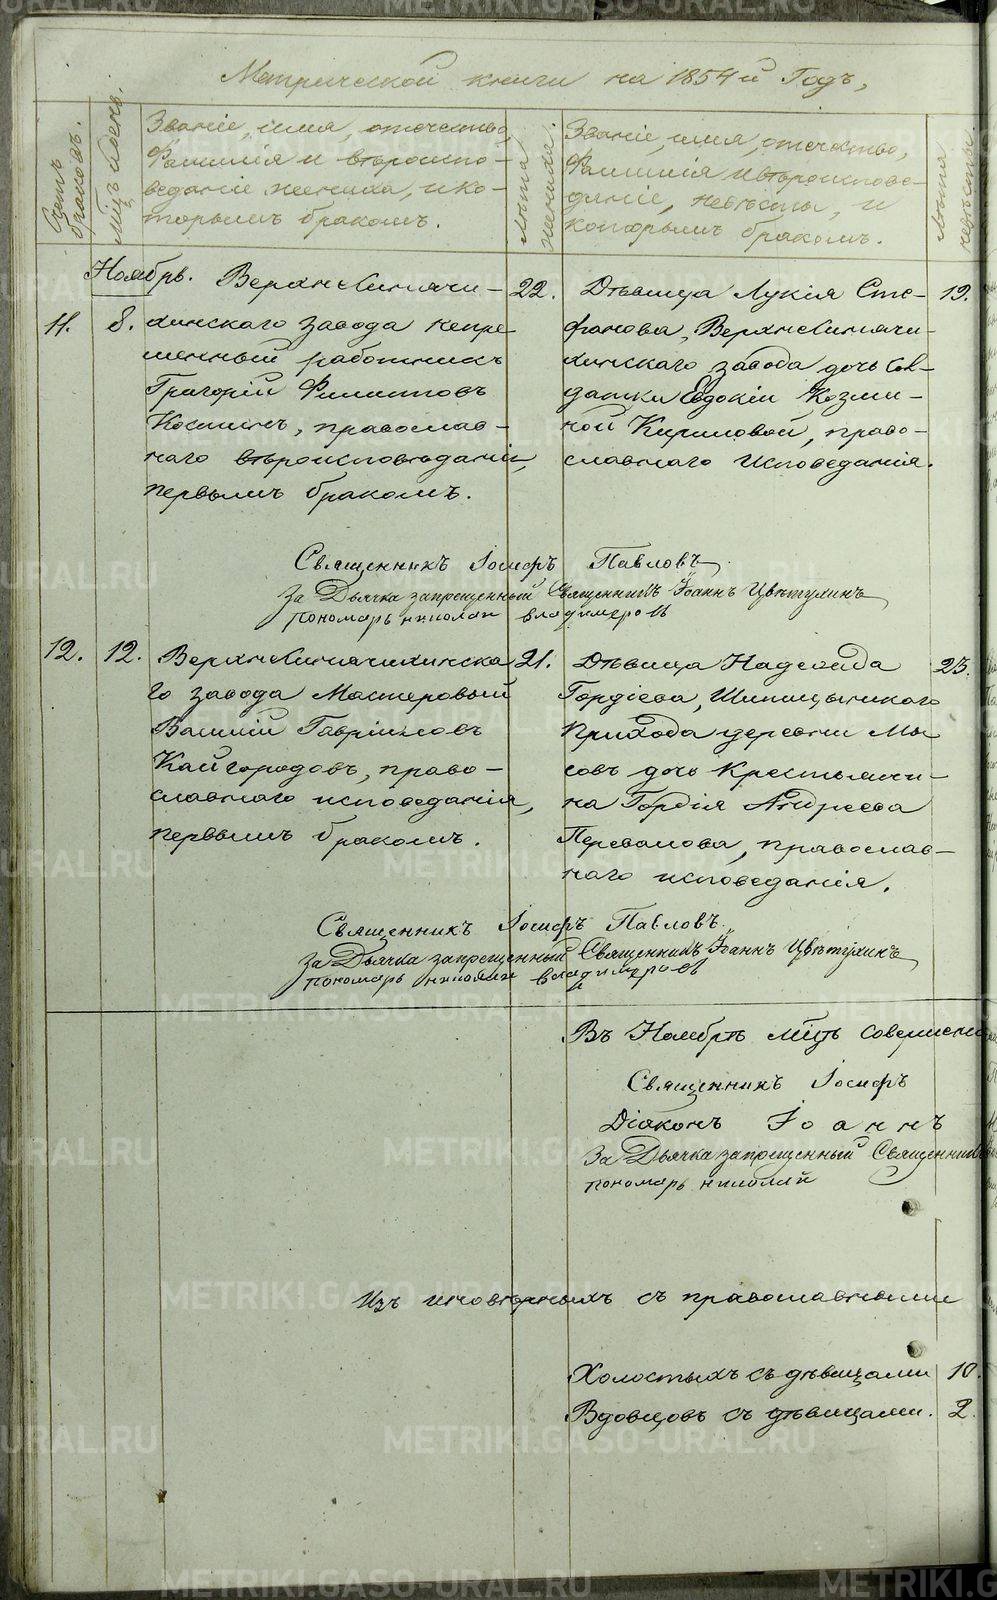 Метрической книги на 1854й Годъ,
Счетъ браковъ.
Мѣсяцъ и день.
Званіе, имя, отечество,
Фамилія и вѣроиспо-
веданіе жениха, и ко-
торымъ бракомъ.
Лѣта жениха.
Званіе, имя, отечество,
Фамилія и вѣроиспове-
даніе, невѣсты, и
которымъ бракомъ.
Лѣта невѣсты.
Ноябрь.
11. 8.
ВерхнеСинячи-
хинскаго завода непре
менный работникъ
Григорій Филиповъ
Костинъ, православ-
наго вѣроисповѣданія,
первымъ бракомъ.
22.
Дѣвица Лукія Сте-
фанова, ВерхнеСинячи-
хинскаго завода дочь Сол-
датки Евдокіи Козми-
ной Кириловой, право-
славнаго исповедания.
19.
Священникъ Іосифъ Павловъ.
За Дьячка запрещенный Священникъ Іоаннъ Цвѣтухинъ
пономарь николай владимеровъ
12. 12.
ВерхнеСинячихинска
го завода Мастеровый
Василій Гавріиловъ
Кайгородовъ, право-
славнаго исповеданія,
первымъ бракомъ.
21.
Дѣвица Надежда
Гордіева, Шипицынскаго
прихода деревни Мы
совъ дочь крестьяни-
на Гордія Андреева
Перевалова, православ-
наго исповеданія.
23.
Священникъ Іосифъ Павловъ.
За Дьячка запрещенный Священникъ Іоаннъ Цвѣтухинъ
пономарь николай владимеровъ
Въ Ноябрѣ мѣсцѣ совершено
Священникъ Іосифъ
Діаконъ Іоаннъ
За Дьячка запрещенный Священникъ
пономарь николай
Изъ иновѣрныхъ съ православными
Холостыхъ съ дѣвицами 10.
Вдовцовъ съ дѣвицами. 2.
METRIKI.GASO-URAL.RU